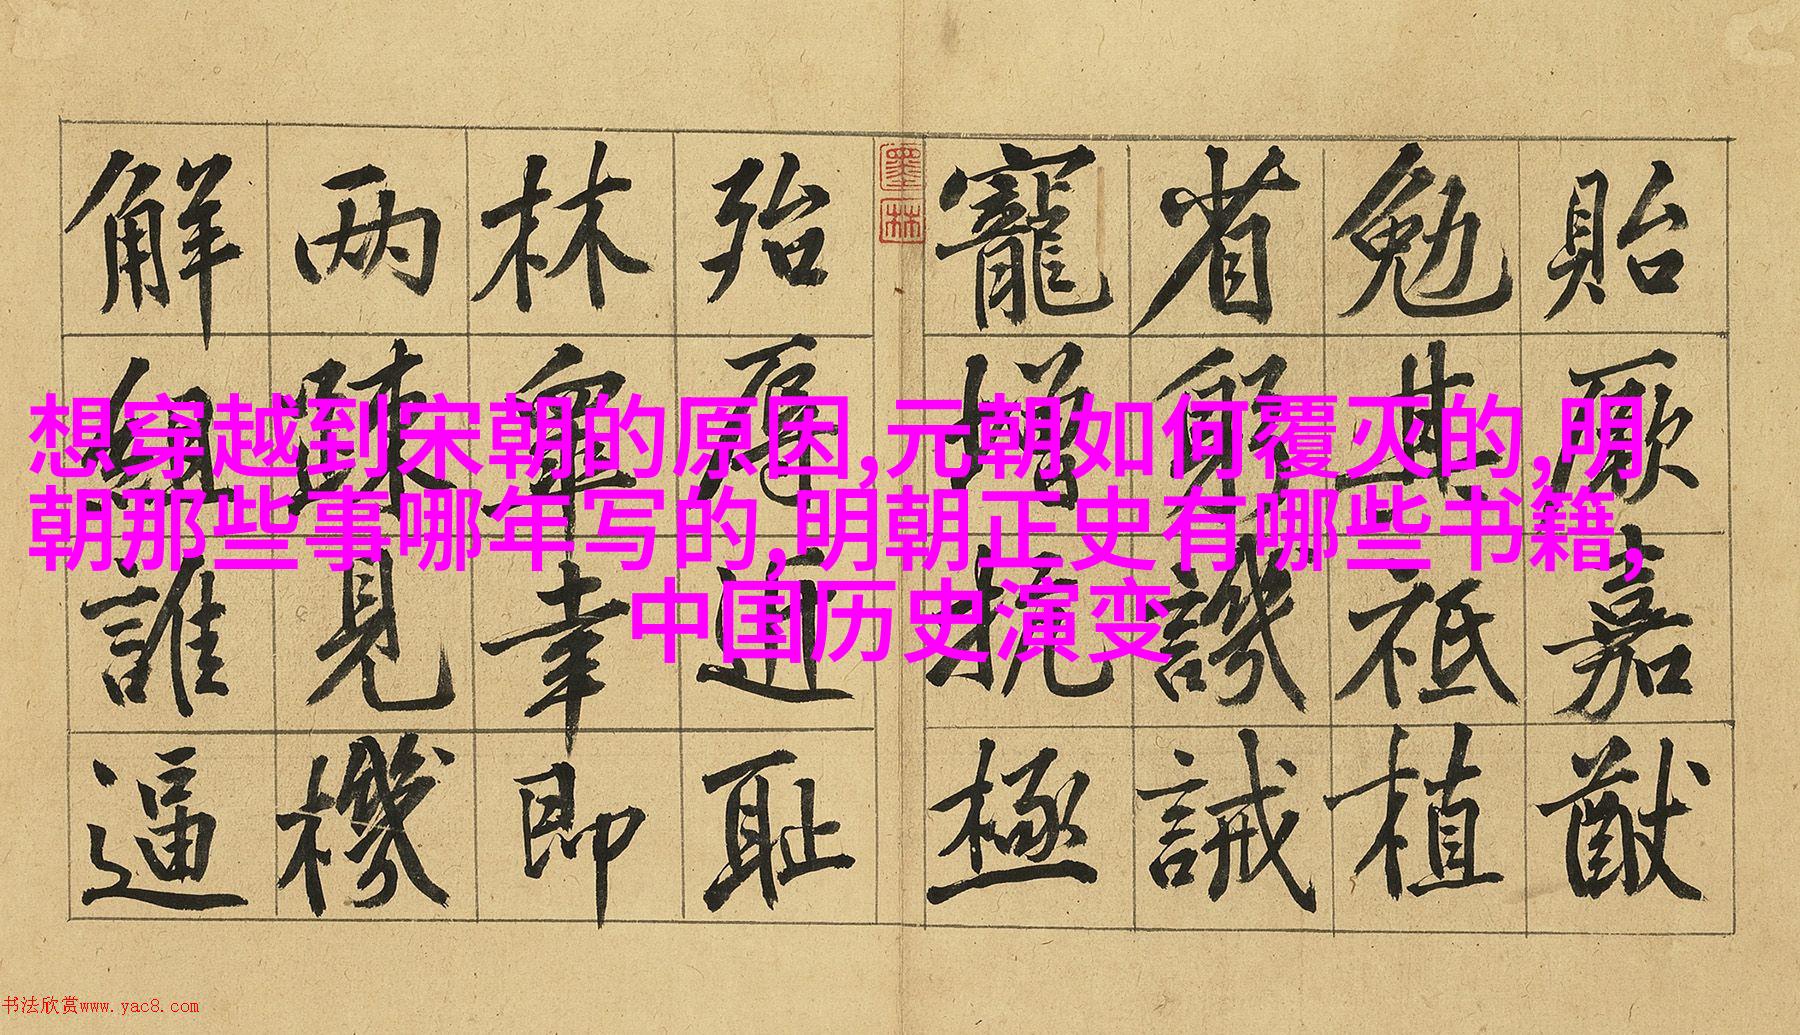 貽厥嘉猷
勉其祗植
省躬譏誡
寵增抗極
墨林
殆辱近耻
林皐幸即
两踈見機
解組誰逼
想穿越到宋朝的原因,元朝如何覆灭的,明
朝那些事哪年写的,明朝正史有哪些书籍,
中国历史演变
书法欣赏www.yac8.com